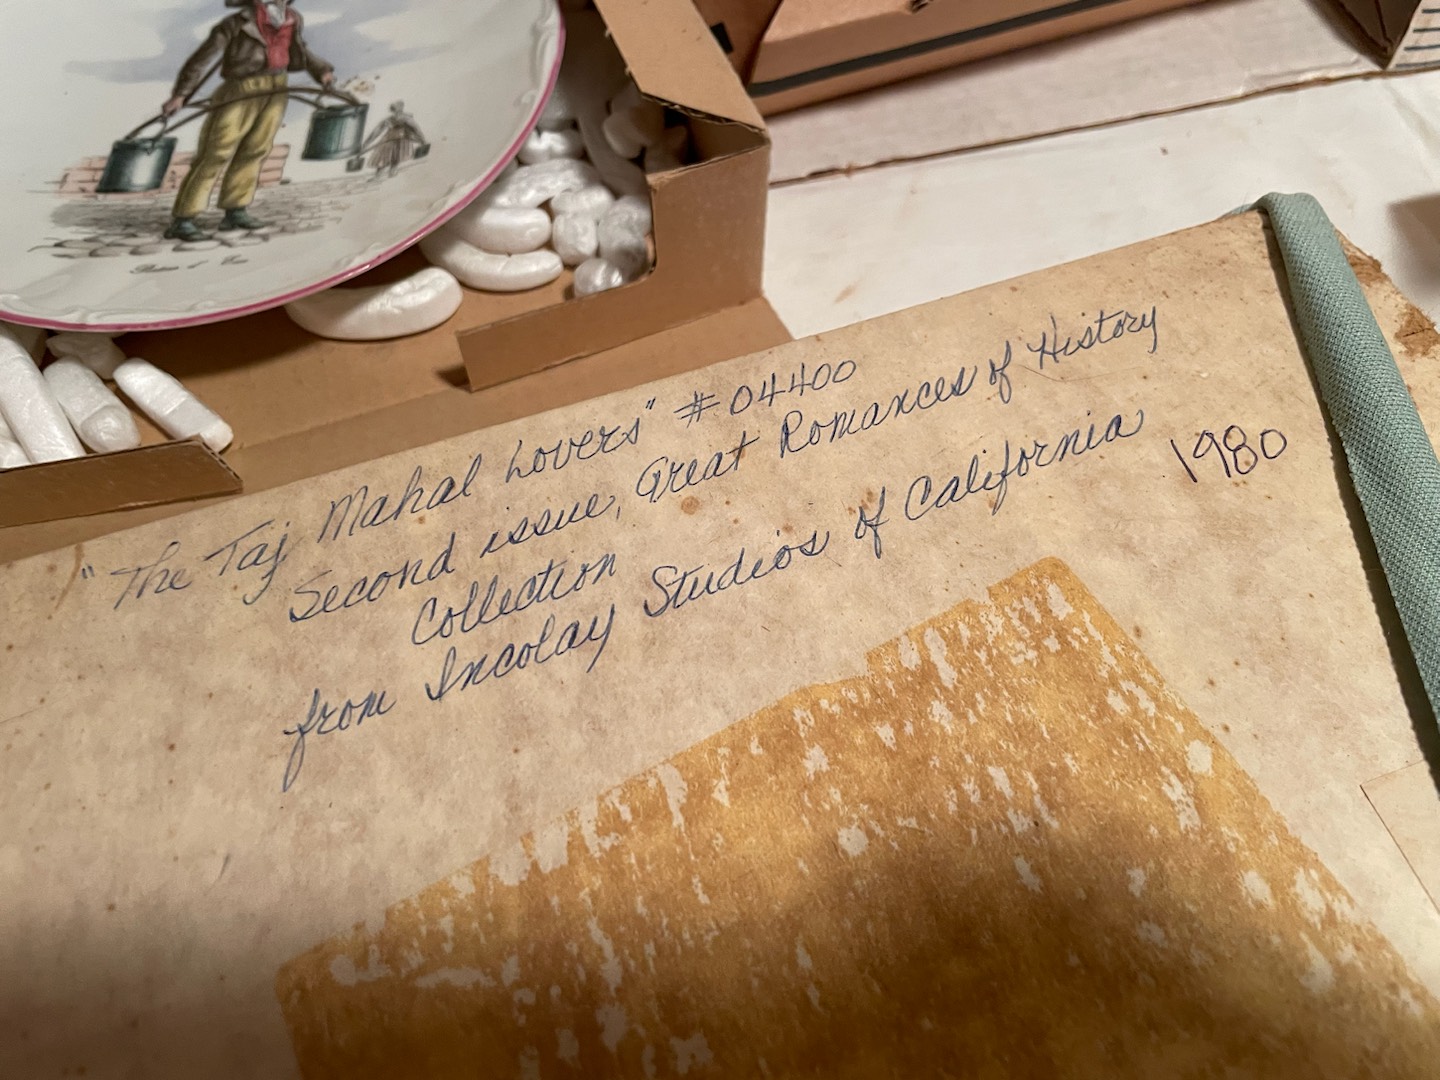 "The Taj Mahal Lovers" #04400
Second issue, Great Romances of History
Collection
from Incolay Studios of California
1980